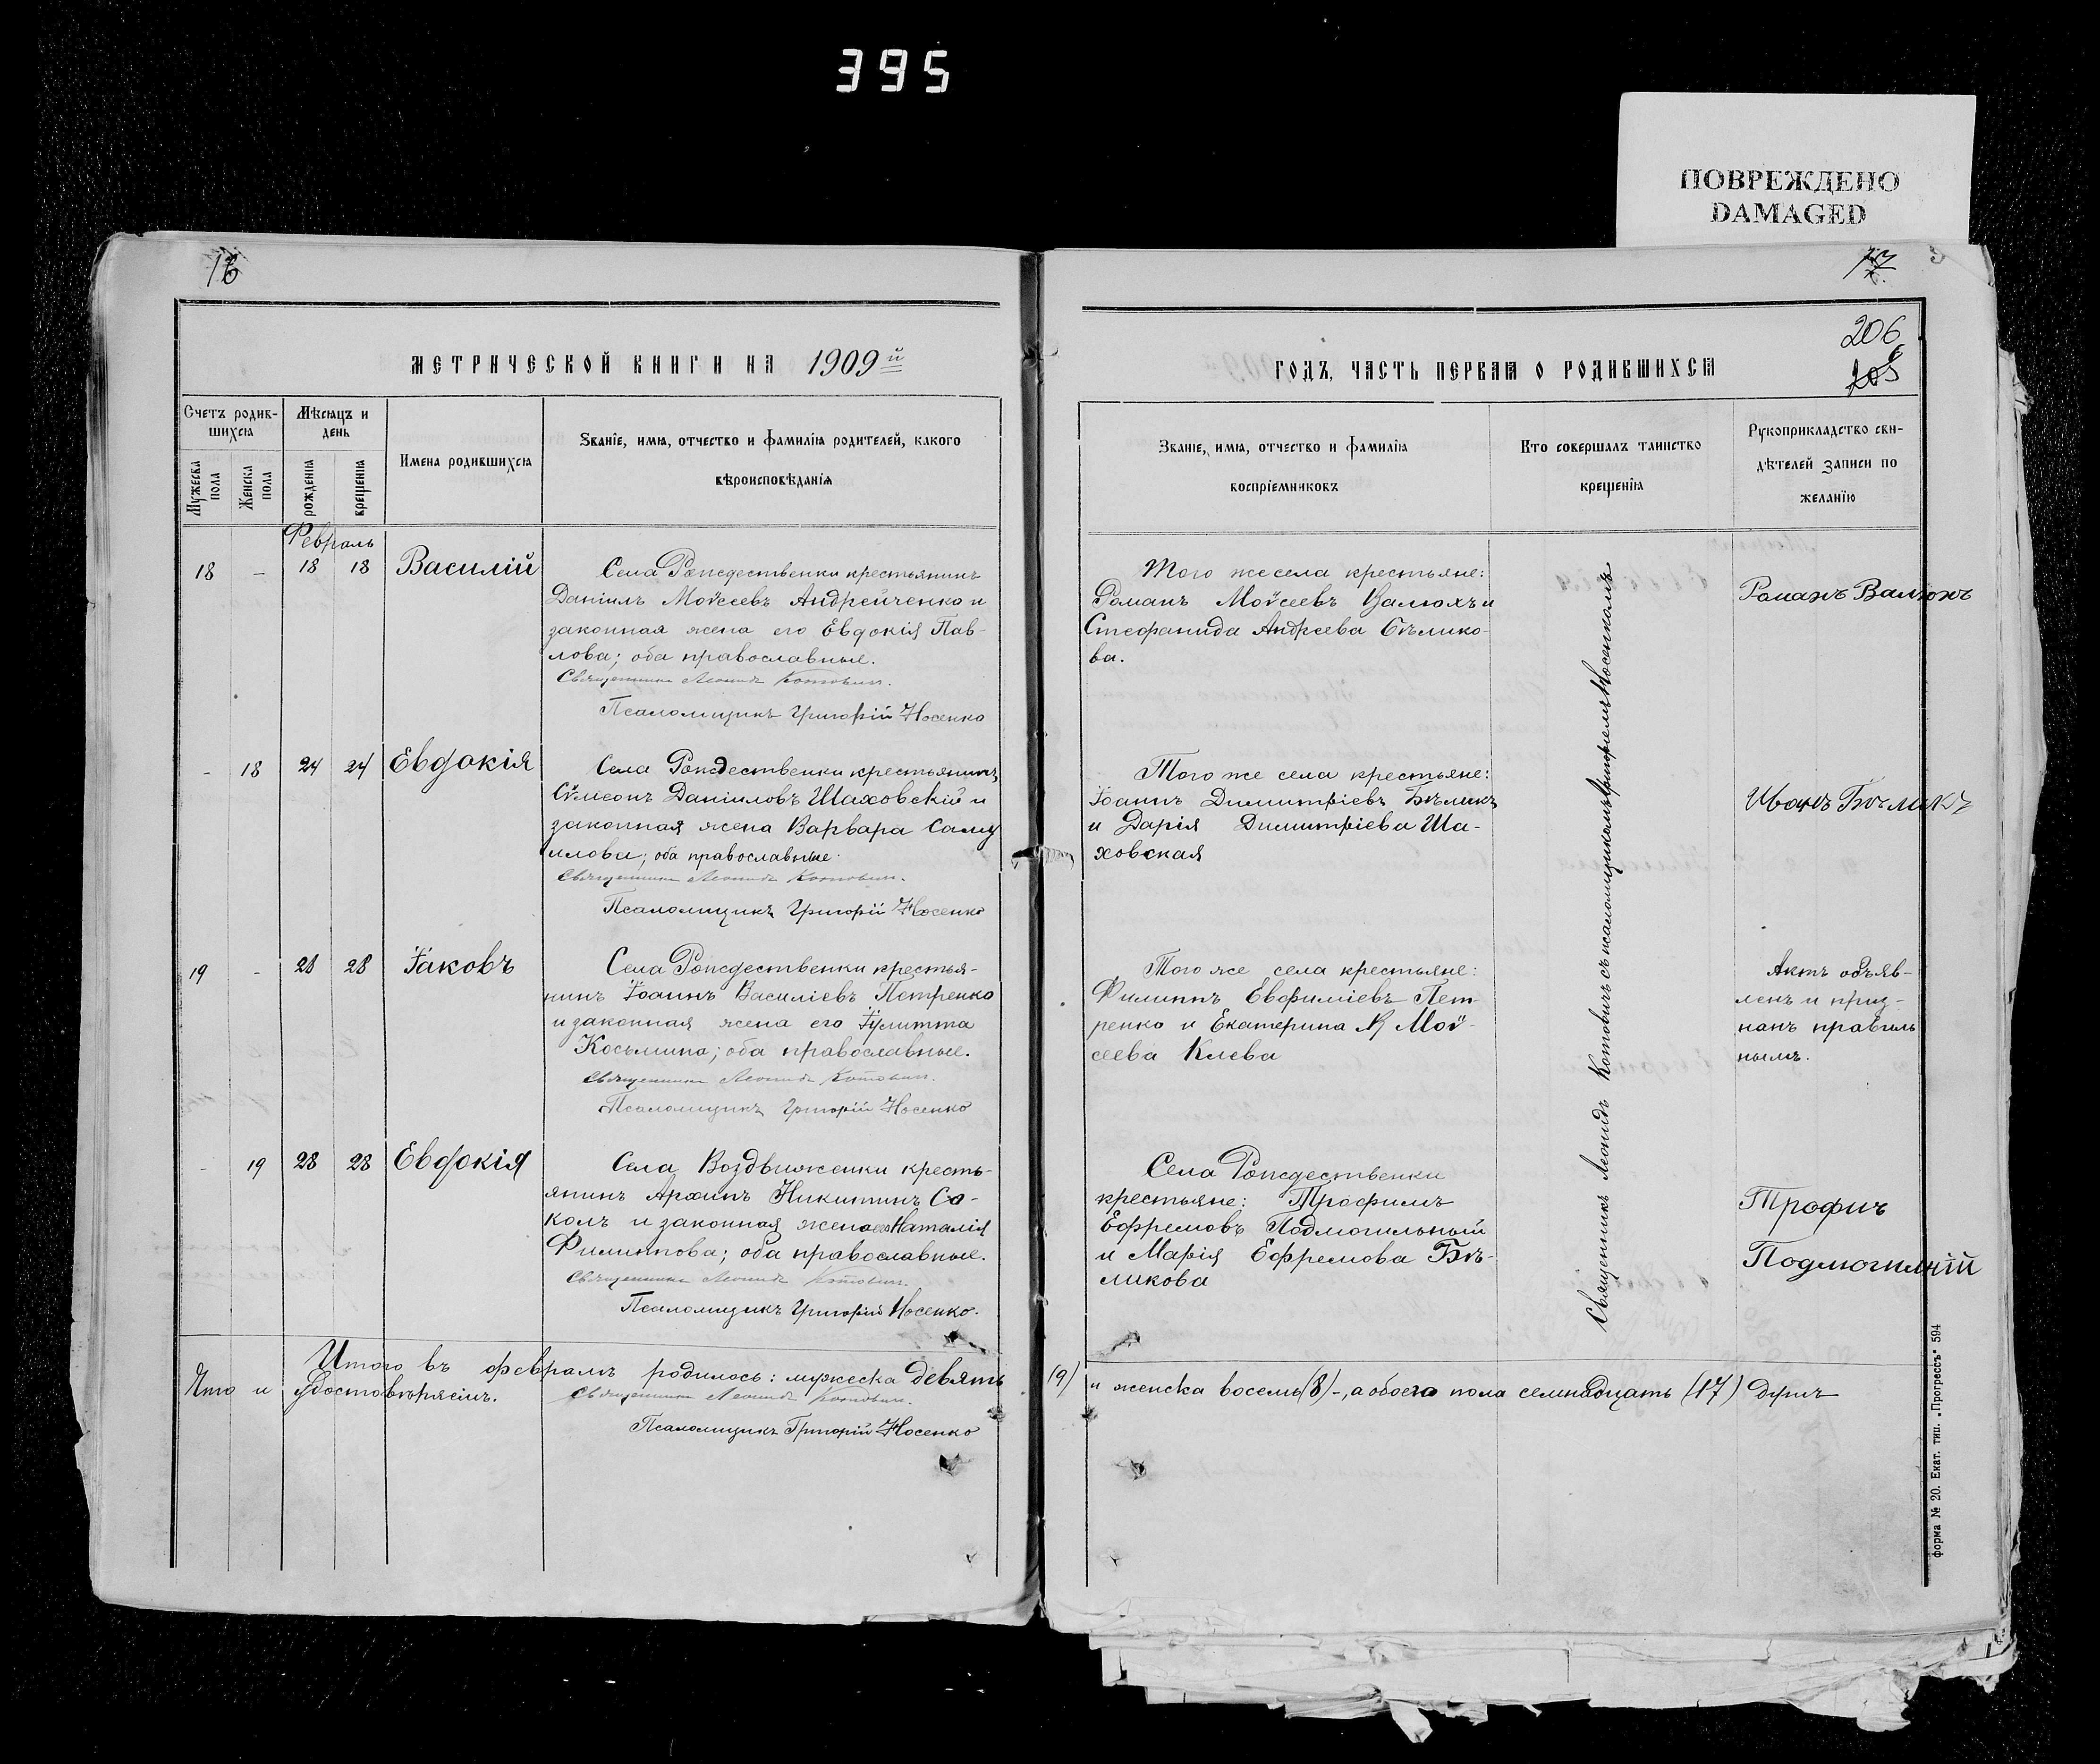 395
ПОВРЕЖДЕНО
DAMAGED
16
МЕТРИЧЕСКОЙ КНИГИ НА 1909й
Счетъ родив-
шихся
Мѣсяцъ и
день
Мужеска пола
Женска пола
рожденія
крещенія
Имена родившихся
Званіе, имя, отчество и фамилія родителей, какого
вѣроисповѣданія
Февраль
18 - 18 18 Василій
Села Рождественки крестьянинъ
Даніилъ Моѵсеевъ Андрейченко и
законная жена его Евдокія Пав-
лова; оба православные.
Священникъ Леонидъ Котовичъ.
Псаломщикъ Григорій Носенко
- 18 24 24 Евдокія
Села Рождественки крестьянинъ
Сѵмеонъ Даніиловъ Шаховскій и
законная жена Варвара Саму
илова; оба православные.
Священникъ Леонидъ Котовичъ.
Псаломщикъ Григорій Носенко
19 - 28 28 Іаковъ
Села Рождественки крестья-
нинъ Іоаннъ Василіевъ Петренко
и законная жена его Іулитта
Косьмина; оба православные.
Священникъ Леонидъ Котовичъ.
Псаломщикъ Григорій Носенко
- 19 28 28 Евдокія
Села Воздвиженки кресть-
янинъ Архипъ Никитинъ Со-
колъ и законная жена его Наталія
Филиппова; оба православные.
Священникъ Леонидъ Котовичъ.
Псаломщикъ Григорій Носенко.
Итого въ февралѣ родилось: мужеска девять
Что и удостовѣряемъ.
Священникъ Леонидъ Котовичъ.
Псаломщикъ Григорій Носенко
17
206
205
ГОДЪ, ЧАСТЬ ПЕРВАЯ О РОДИВШИХСЯ
Званіе, имя, отчество и фамилія
воспріемниковъ
Кто совершалъ таинство
крещенія
Рукоприкладство сви-
дѣтелей записи по
желанію
Того же села крестьяне:
Романъ Моѵсеевъ Валюхъ и
Стефанида Андреева Бѣлико-
ва.
Романъ Валюхъ
Того же села крестьяне:
Іоаннъ Димитріевъ Бѣликъ
и Дарія Димитріева Ша-
ховская
Иванъ Бѣликъ
Того же села крестьяне:
Филиппъ Евфиміевъ Пет-
ренко и Екатерина Моѵ-
сеева Клева
Актъ объяв-
ленъ и приз-
нанъ правиль
нымъ.
Села Рождественки
крестьяне: Трофимъ
Ефремовъ Подмогильный
и Марія Ефремова Бѣ-
ликова
Трофим
Подмогилній
Священникъ Леонидъ Котовичъ съ псаломщикомъ Григоріемъ Носенкомъ
(9) и женска восемь (8) -, а обоего пола семнадцать (17) душъ
форма № 20. Екат. тип. „Прогрессъ“ 594